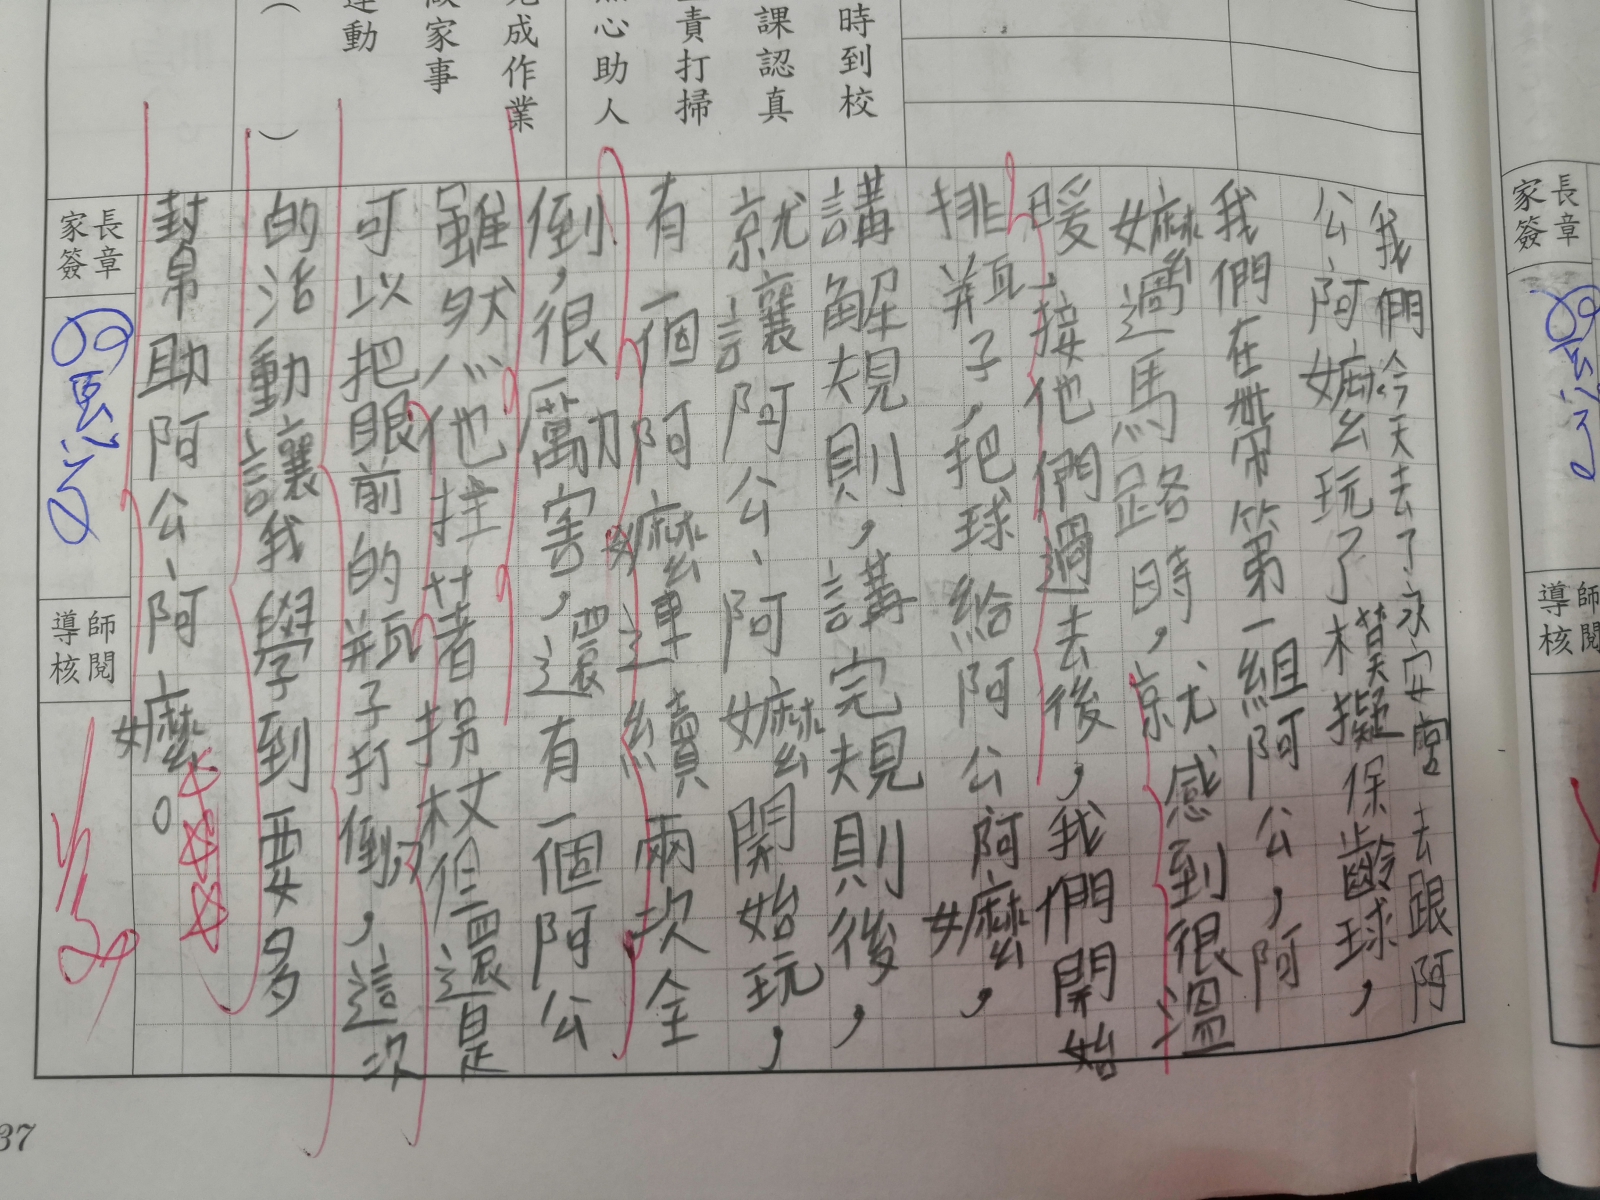 時到校
課認真
責打掃
心助人
成作業
家事
運動
（　）
我們今天去了永安宮去跟阿
公、阿嬤玩了模擬保齡球，
我們在帶第一組阿公，阿
嬤過馬路時，就感到很溫
暖，接他們過去後，我們開始
排瓶子，把球給阿公阿嬤，
講解規則，講完規則後，
就讓阿公、阿嬤開始玩，
有一個阿嬤連續兩次全
倒，很厲害，還有一個阿公
雖然他拄著拐杖但還是
可以把眼前的瓶子打倒，這次
的活動讓我學到要多
幫助阿公、阿嬤。
家長
簽章
導師
核閱
家長
簽章
導師
核閱
37